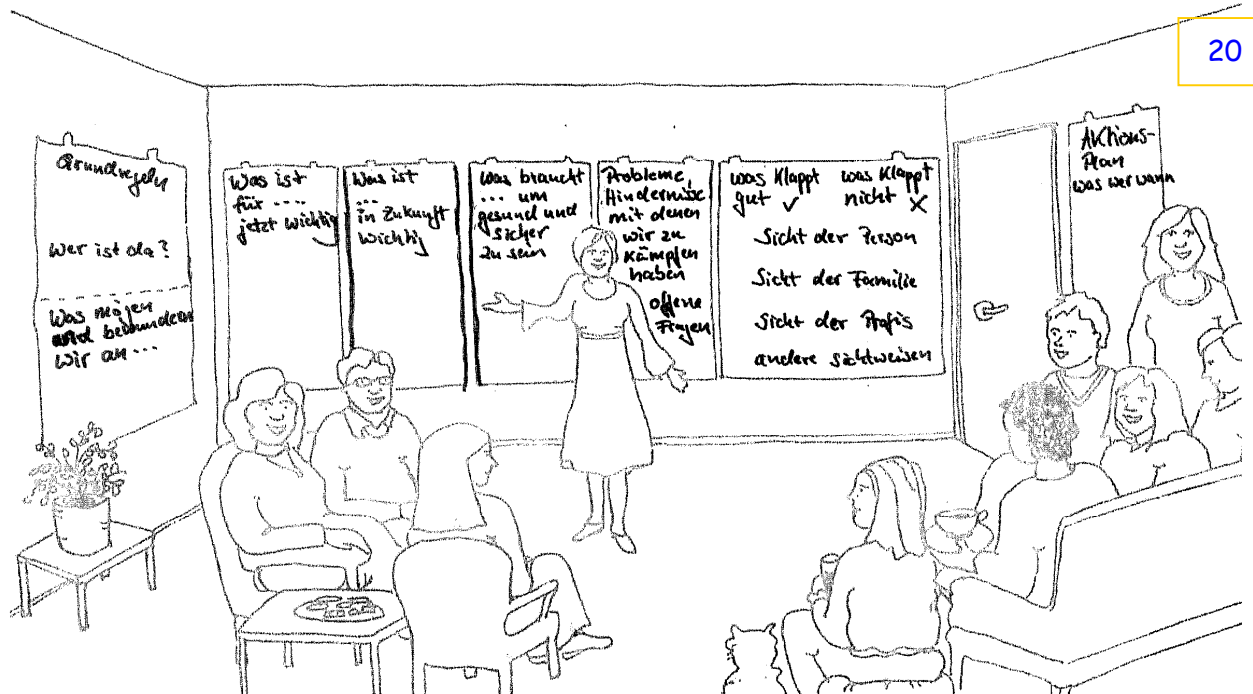 20
Grundregeln
Wer ist da?
Was mögen
und bewundern
wir an ...
Was ist
für ....
jetzt wichtig
Was ist
...
in Zukunft
wichtig
was braucht
... um
gesund und
sicher
zu sein
Probleme,
Hindernisse
mit denen
wir zu
kämpfen
haben
offene
Fragen
was klappt was klappt
gut ✓ nicht X
Sicht der Person
Sicht der Familie
Sicht der Profis
andere Sichtweisen
Aktions-
Plan
was wer wann